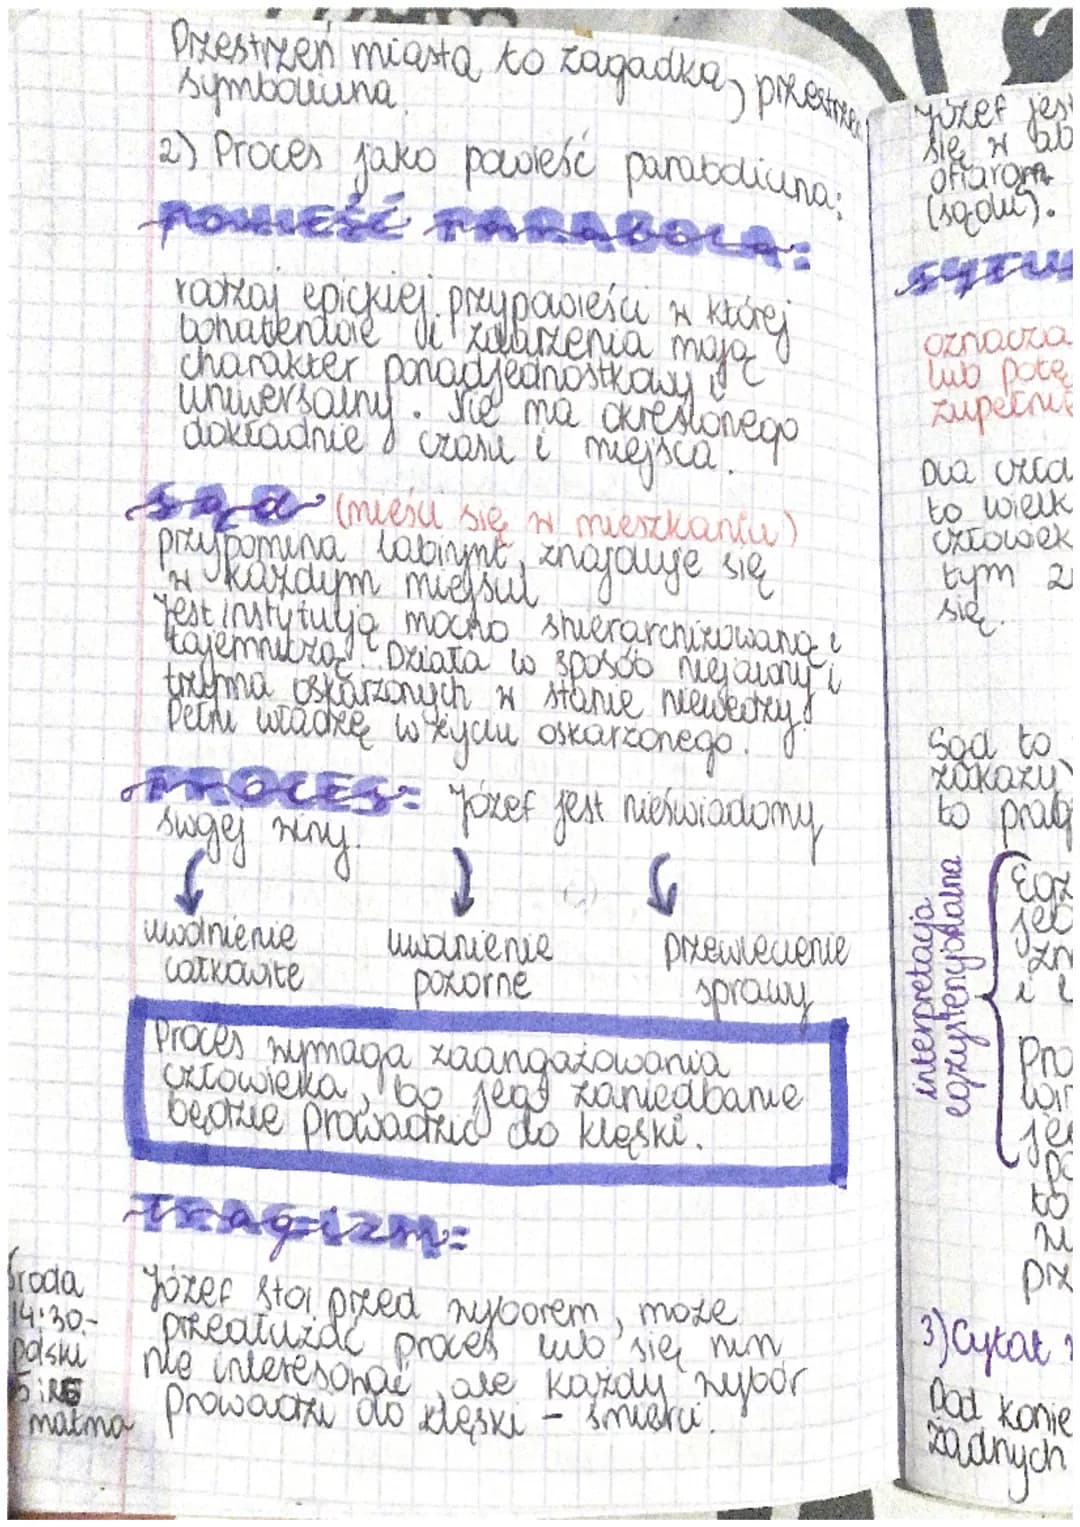 Przestrzeń miasta to zagadka, przestrzeń
symboliczna.
2) Proces jako powieść paraboliczna:
POWIEŚĆ PARABOLA:
rodzaj epickiej przypowieści w której
bohaterowie i zdarzenia mają
charakter ponadjednostkowy i
uniwersalny. Nie ma określonego
dokładnie czasu i miejsca.
Sąd (mieści się w mieszkaniu)
przypomina labirynt, znajduje się
w każdym miejscu
Jest instytucją mocno shierarchizowaną i
tajemniczą. Działa w sposób niejawny i
trzyma oskarżonych w stanie niewiedzy.
Pełni władzę w życiu oskarżonego.
PROCES: Józef jest nieświadomy
swojej winy.
uwolnienie uwolnienie przewleczenie
całkowite pozorne sprawy
Proces wymaga zaangażowania
człowieka, bo jego zaniedbanie
będzie prowadzić do klęski.
Tragizm:
Józef stoi przed wyborem, może
przedłużać proces lub się nim
nie interesować, ale każdy wybór
prowadzi do klęski - śmierci.
Środa
14:30-
polski
matma
Józef jest
się w
ofiarom
(sądu).
SYTU
oznacza
lub potę
zupełnie
Dla czło
to wielk
człowiek
tym
się.
Sąd to
zakazu
to prag
interpretacja
egzystencjonalna
Egz
jeb
zn
i
Pro
win
jeg
po
to
prz
3) Cytat
Pod konie
żadnych